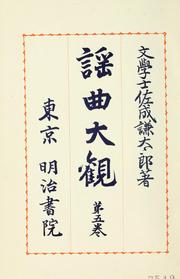 文學士佐成謙太郎著
謡曲大観
第五巻
東京 明治書院